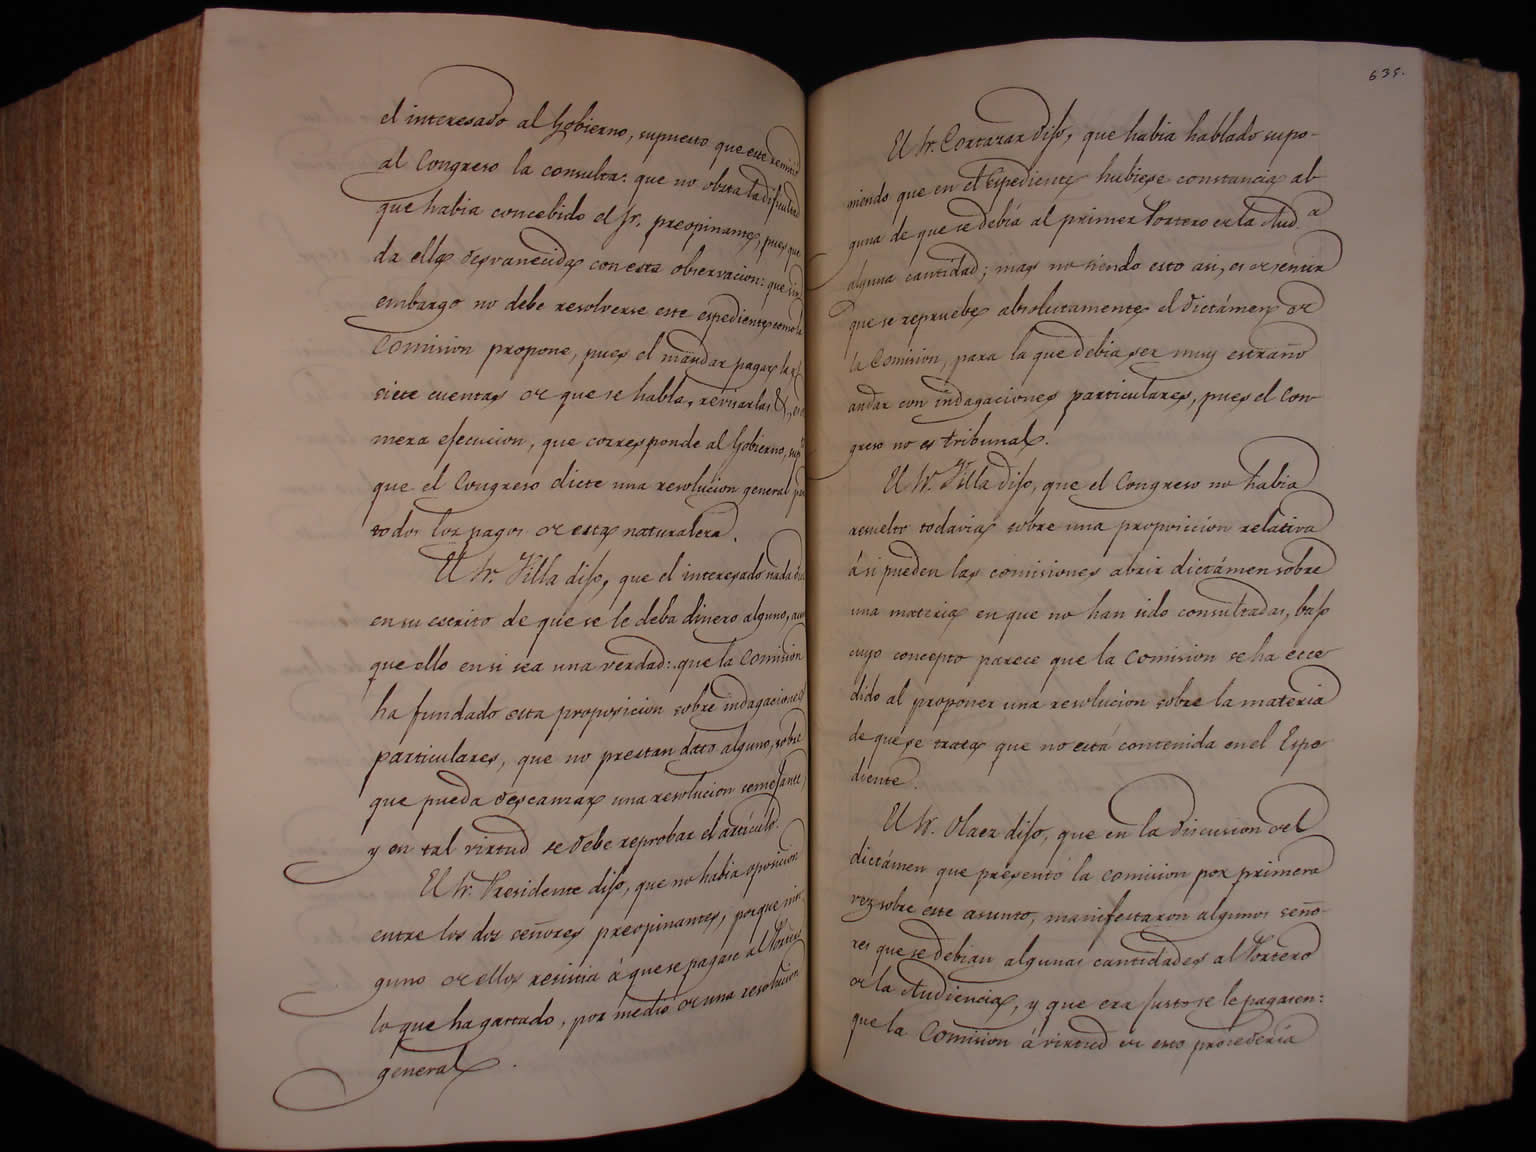 el interesado al Gobierno, supuesto que este remitió
al Congreso la consulta: que no obsta la dificultad
que habia concebido el Sr. preopinante, pues que
da ella desvanecida con esta observacion: que sin
embargo no debe resolverse este espediente como la
Comision propone, pues el mandar pagar las
siete cuentas de que se habla, revisarlas &, es
mera ejecucion, que corresponde al Gobierno,
que el Congreso dicte una resolucion general
todos los pagos de esta naturaleza.
El Sr. Villa dijo, que el interesado nada
en su escrito de que se le deba dinero alguno,
que ello en si sea una verdad: que la Comision
ha fundado esta proposicion sobre indagaciones
particulares, que no prestan dato alguno, sobre
que pueda descansar una resolucion semejante,
y en tal virtud se debe reprobar el artículo.
El Sr. Presidente dijo, que no habia oposicion
entre los dos señores preopinantes, porque nin
guno de ellos resistia á que se pagase al Portero
lo que ha gastado, por medio de una resolucion
general.
635.
El Sr. Cortazar dijo, que habia hablado supo-
niendo que en el Espediente hubiese constancia al
guna de que se debía al primer Portero de la Aud.a
alguna cantidad; mas no siendo esto asi, es de sentir
que se repruebe absolutamente el dictámen de
la Comision, para la que debia ser muy estraño
andar con indagaciones particulares, pues el Con-
greso no es tribunal.
El Sr. Villa dijo, que el Congreso no habia
resuelto todavia sobre una proposicion relativa
á si pueden las comisiones abrir dictámen sobre
una materia en que no han sido consultadas, bajo
cuyo concepto parece que la Comision se ha esce
dido al proponer una resolucion sobre la materia
de que se trata que no está contenida en el Espe
diente.
El Sr. Olaez dijo, que en la discusion del
dictámen que presentó la comision por primera
vez sobre este asunto, manifestaron algunos seño-
res que se debian algunas cantidades al Portero
de la Audiencia, y que era justo se le pagasen:
que la Comision á virtud de esto procedería